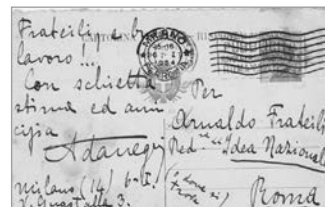 Frateili, e b
lavoro!..
Con schietta
stima ed ami
cizia
Adanegri
Milano (14) 6-I.
V. Guastalla 3.
CARTOLINA
MILANO
Per
Arnaldo Frateili
Red. "Idea Nazional
Roma